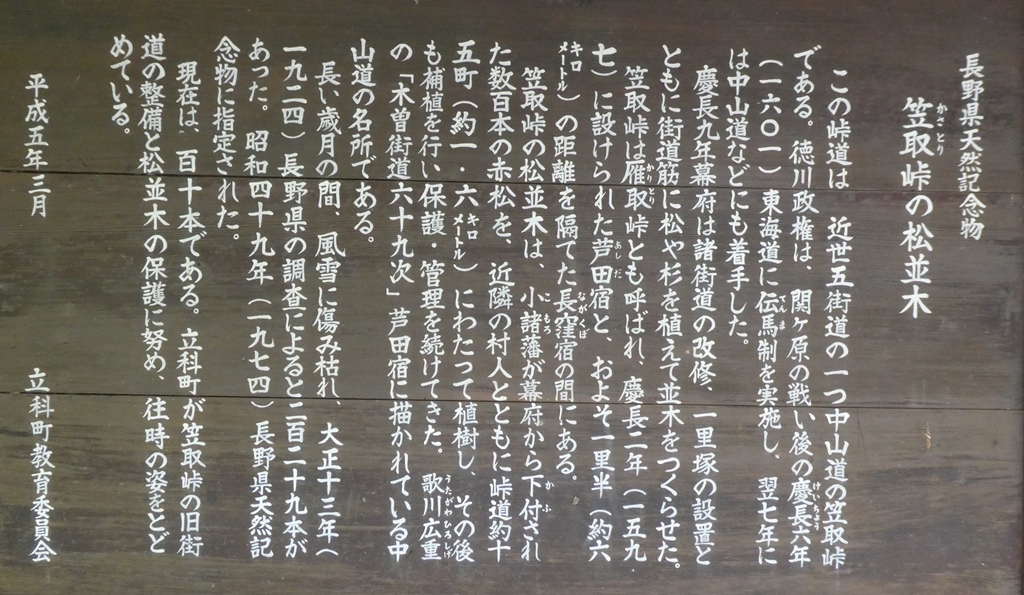 長野県天然記念物
笠取峠の松並木
この峠道は 近世五街道の一つ中山道の笠取峠
である。徳川政権は、関ヶ原の戦い後の慶長六年
（一六〇一）東海道に伝馬制を実施し、翌七年に
は中山道などにも着手した。
慶長九年幕府は諸街道の改修、一里塚の設置と
ともに街道筋に松や杉を植えて並木をつくらせた。
笠取峠は雁取峠とも呼ばれ、慶長二年（一五九
七）に設けられた芦田宿と、およそ一里半（約六
キロメートル）の距離を隔てた長窪宿の間にある。
笠取峠の松並木は、小諸藩が幕府から下付され
た数百本の赤松を、近隣の村人とともに峠道約十
五町（約一・六キロメートル）にわたって植樹し その後
も補植を行い保護・管理を続けてきた。歌川広重
の「木曽街道六十九次」芦田宿に描かれている中
山道の名所である。
長い歳月の間、風雪に傷み枯れ、大正十三年（
一九二四）長野県の調査によると二百二十九本が
あった。昭和四十九年（一九七四）長野県天然記
念物に指定された。
現在は、百十本である。立科町が笠取峠の旧街
道の整備と松並木の保護に努め、往時の姿をとど
めている。
平成五年三月 立科町教育委員会